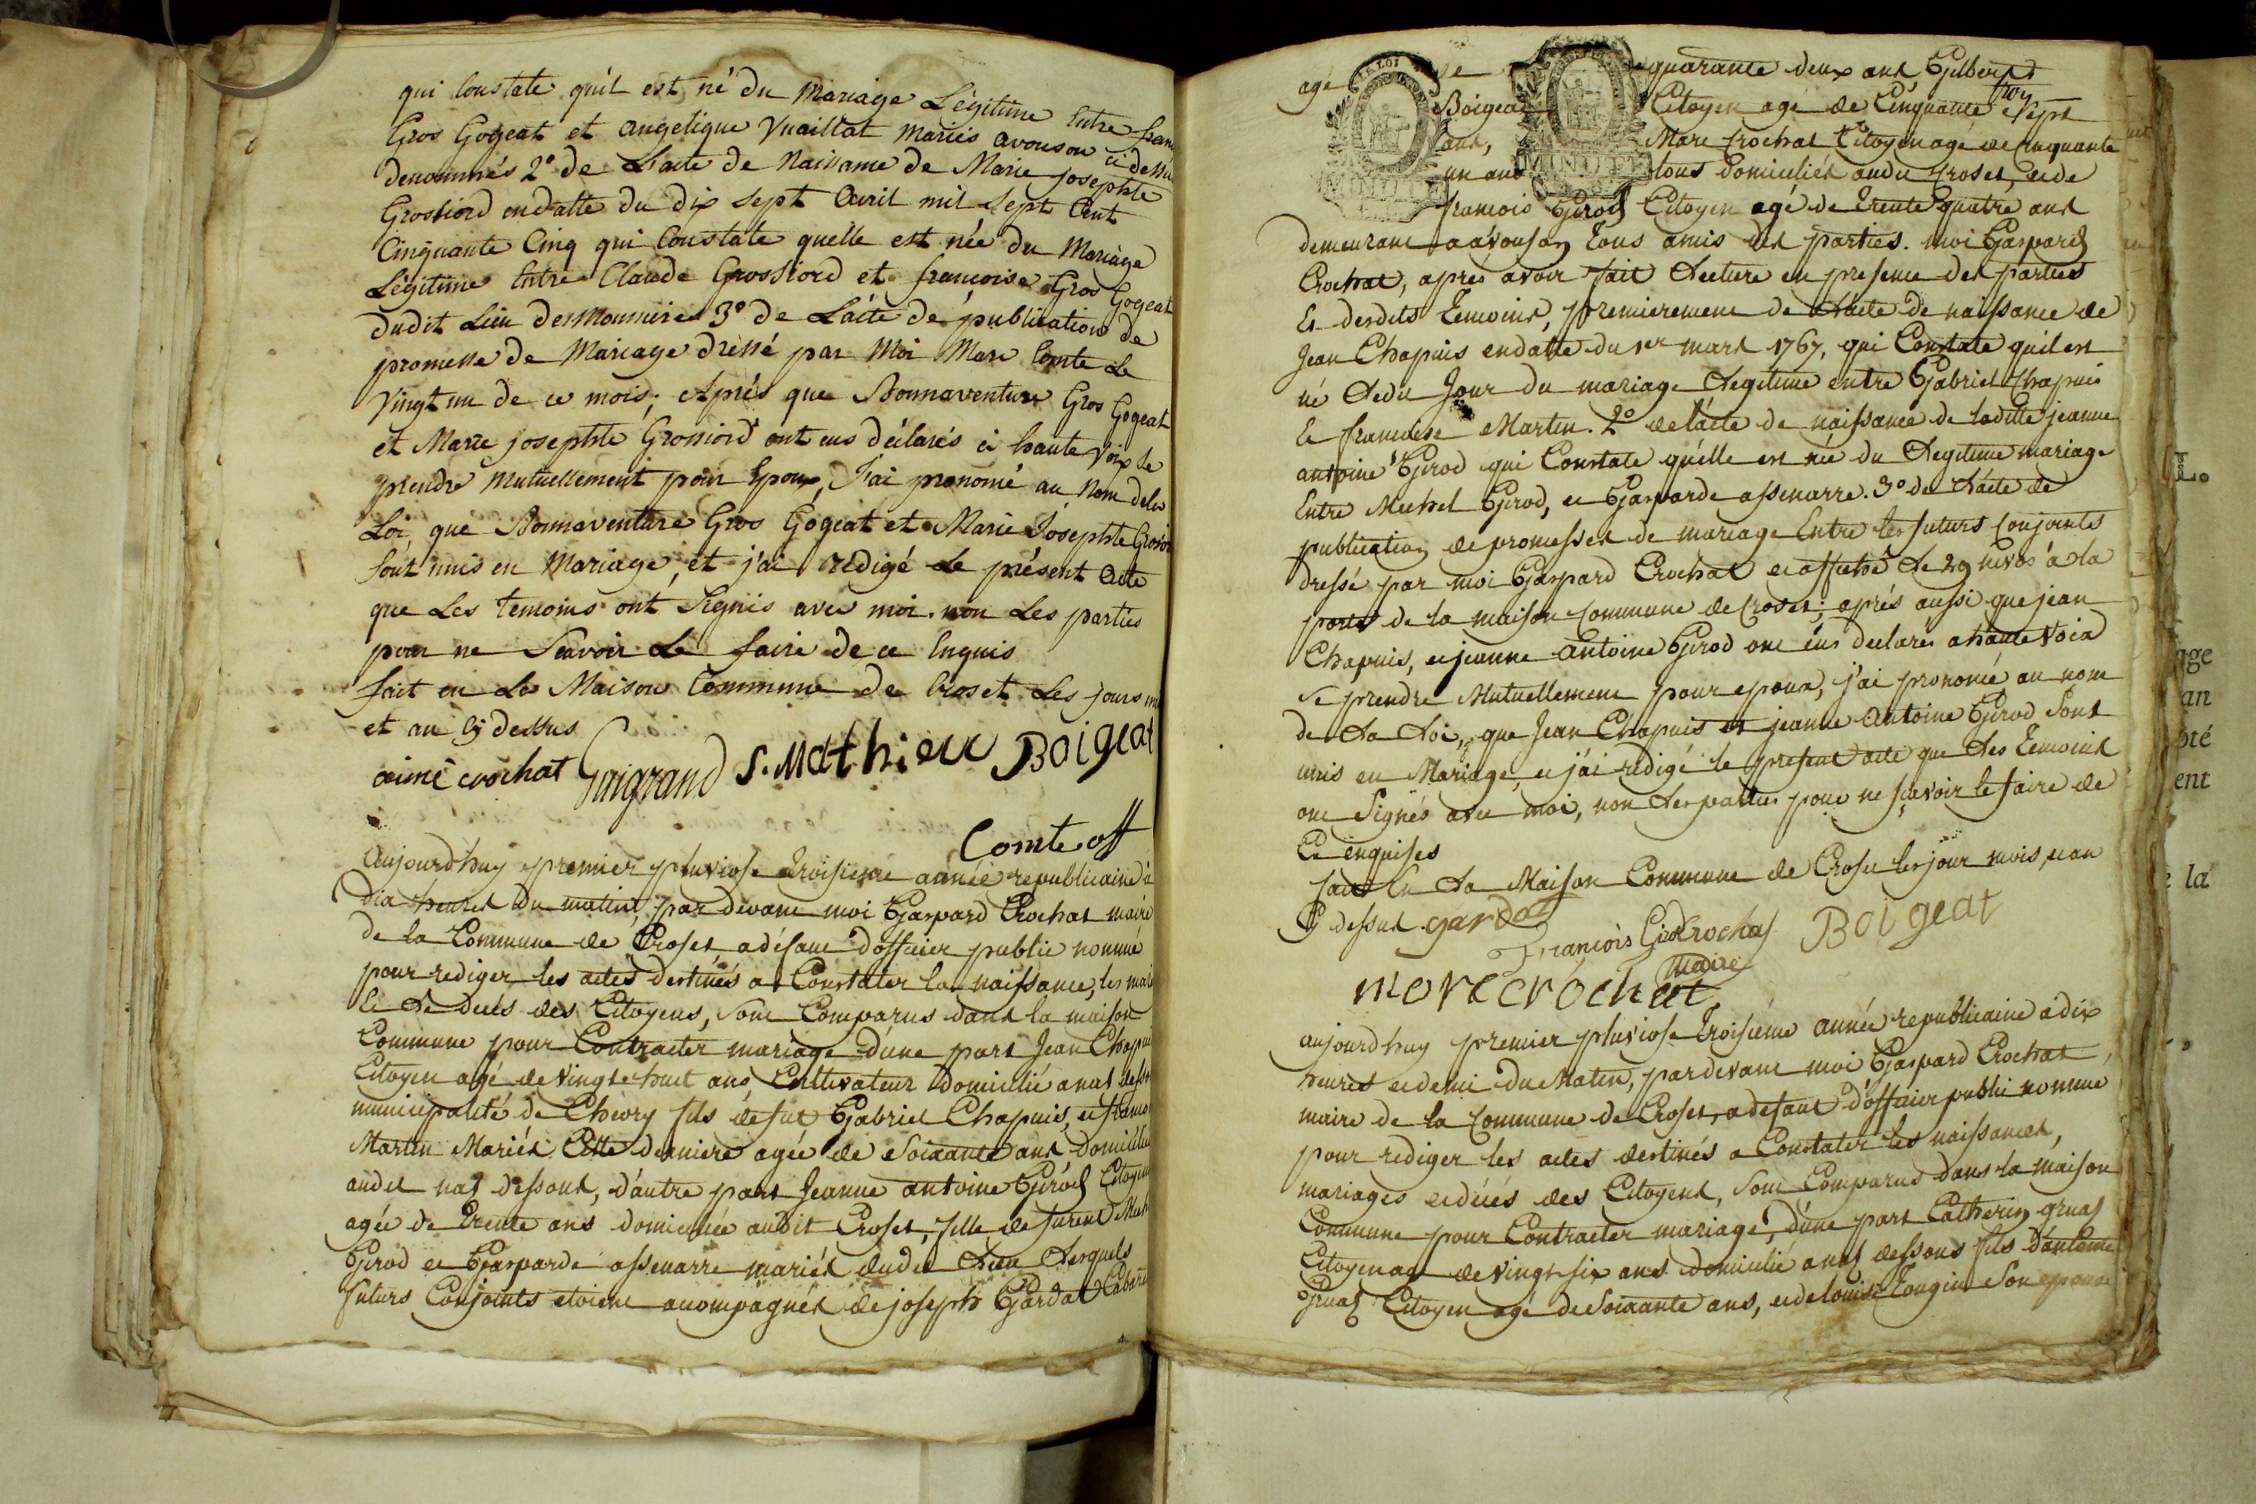 qui Constate qu'il est né du Mariage Légitime Entre fran
Gros Gogeat et angelique Vuaillat mariés avouson ci dessu
denommés 2° de L'acte de Naissance de Marie josephte
Grossiord en datte du dix sept avril mil sept Cent
Cinquante Cinq qui Constate quelle est née du Mariage
Légitime Entre Claude Grossiord et françoise Gros Gogeat
dudit Lieu des 3° de L'acte de publication de
promesse de Mariage dressé par Moi Marc Comte Le
Vingt un de ce mois; Après que Bonnaventure Gros Gogeat
et Marie josephte Grossiord ont eus déclarés à haute Voix se
prendre Mutuellement pour Epoux, J'ai prononcé au Nom dela
Loi, que Bonnaventure Gros Gogeat et Marie Josephte Grossior
sont unis en Mariage, et j'ai redigé Le présent Acte
que Les temoins ont Signés avec moi non Les parties
pour ne Scavoir Le faire de ce Enquis
fait en La Maison Commune de Croset Les jours m
et an Cy dessus
aimé crochat S. Mathieu Boigeat
Comte off
Aujourd'huy premier pluviose troisieme année republicaine à
dix heures du matin, par devant moi Gaspard Crochat maire
de la Commune de Croset, a défaut d'officier public nommé
pour rediger les actes destinés a Constater la naissance, les mari
Et Le Decès des Citoyens, sont Comparus dans la maison
Commune pour Contracter mariage d'une part Jean Chapui
Citoyen agé de Vingt huit ans Cultivateur Domicilié a nas desso
municipalité de Chevry fils de fut Gabriel Chapuis, et franco
Martin Mariés Cette derniere agée de Soixante ans Domicilié
audit nas dessous, d'autre part Jeanne antoine Girod Citoyen
agée de Trente ans domiciliée audit Croset, fille de furent Mich
Girod et Gasparde assenarre mariés dudit Lieu Lesquels
futurs Conjoints étoient accompagnés de joseph Gardat
agé de quarante deux ans Gilbert
Boigeat Citoyen agé de Cinquante Sept
ans, Marc Crochat Citoyen agé de Cinquante
un ans tous domiciliés audit Croset, et de
francois Girod Citoyen agé de Trente quatre ans
demeurant a avouson Tous amis des parties. moi Gaspard
Crochat, aprés avoir fait Lecture en presence des parties
Et desdits Temoins, premierement de L'acte de naissance de
Jean Chapuis en datte du 1er mars 1767, qui Constate qu'il est
né Ledit Jour du mariage Légitime entre Gabriel Chapuis
Et francoise Martin. 2° de l'acte de naissance de ladite jeanne
antoine Girod qui Constate qu'elle est née du Legitime mariage
Entre Michel Girod, et Gasparde assenarre. 3° de L'acte de
publication de promesses de mariage Entre les futurs Conjoints
dressé par moi Gaspard Crochat et affiché Le 29 nivos à la
porte de la maison Commune de Croset; aprés aussi que jean
Chapuis, et jeanne antoine Girod ont eus declarés a haute Voix
se prendre Mutuellement pour epoux, j'ai prononcé au nom
de La Loi, que Jean Chapuis et jeanne antoine Girod Sont
unis en Mariage, et j'ai redigé le present acte que Les Temoins
ont Signés avec moi, non Les parties pour ne sçavoir le faire de
Ce enquises
fait En La Maison Commune de Croset les jour mois, et an
Cy dessus gardat
François Girod Crochat Boigeat
marc crochat maire
aujourd'huy premier pluviose Troisieme année republicaine à dix
heures et demi du Matin, pardevant moi Gaspard Crochat,
maire de la Commune de Croset, a defaut d'officier public nommé
pour rediger les actes destinés a Constater les naissances,
mariages et décés des Citoyens, Sont Comparus dans la maison
Commune pour Contracter mariage, d'une part Catherin gruas
Citoyen agé de vingt six ans domicilié a nas dessous fils d'antoine
Gruas Citoyen agé de Soixante ans, et de louise Tougin Son epouse